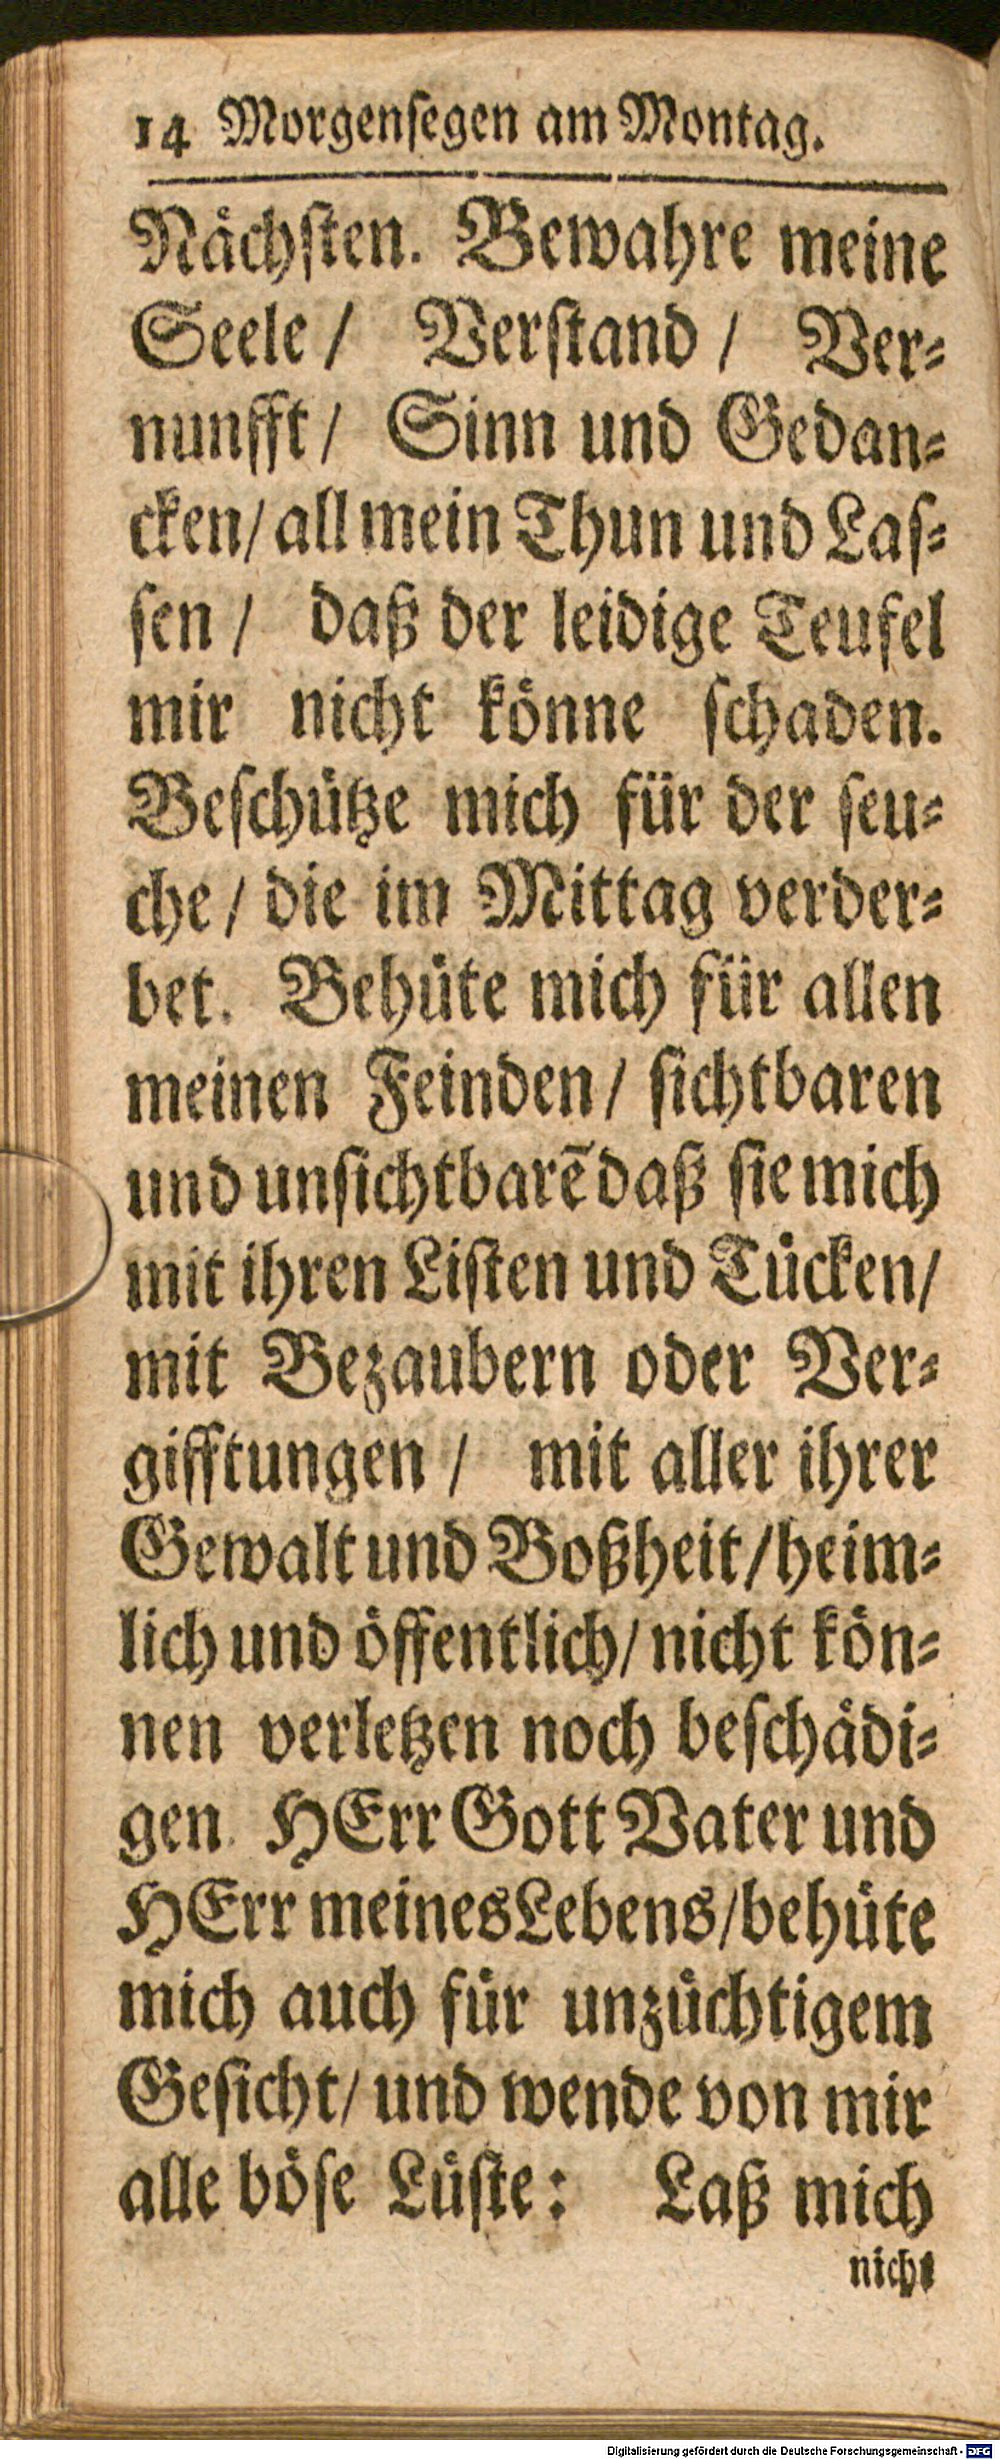 14 Morgensegen am Montag.
Nächsten. Bewahre meine
Seele / Verstand / Ver-
nunfft / Sinn und Gedan-
cken / all mein Thun und Las-
sen / daß der leidige Teufel
mir nicht könne schaden.
Beschütze mich für der seu-
che / die im Mittag verder-
bet. Behüte mich für allen
meinen Feinden / sichtbaren
und unsichtbarē daß sie mich
mit ihren Listen und Tücken /
mit Bezaubern oder Ver-
gifftungen / mit aller ihrer
Gewalt und Boßheit / heim-
lich und öffentlich / nicht kön-
nen verletzen noch beschädi-
gen. HErr Gott Vater und
HErr meines Lebens / behüte
mich auch für unzüchtigem
Gesicht / und wende von mir
alle böse Lüste: Laß mich
nicht
Digitalisierung gefördert durch die Deutsche Forschungsgemeinschaft - DFG